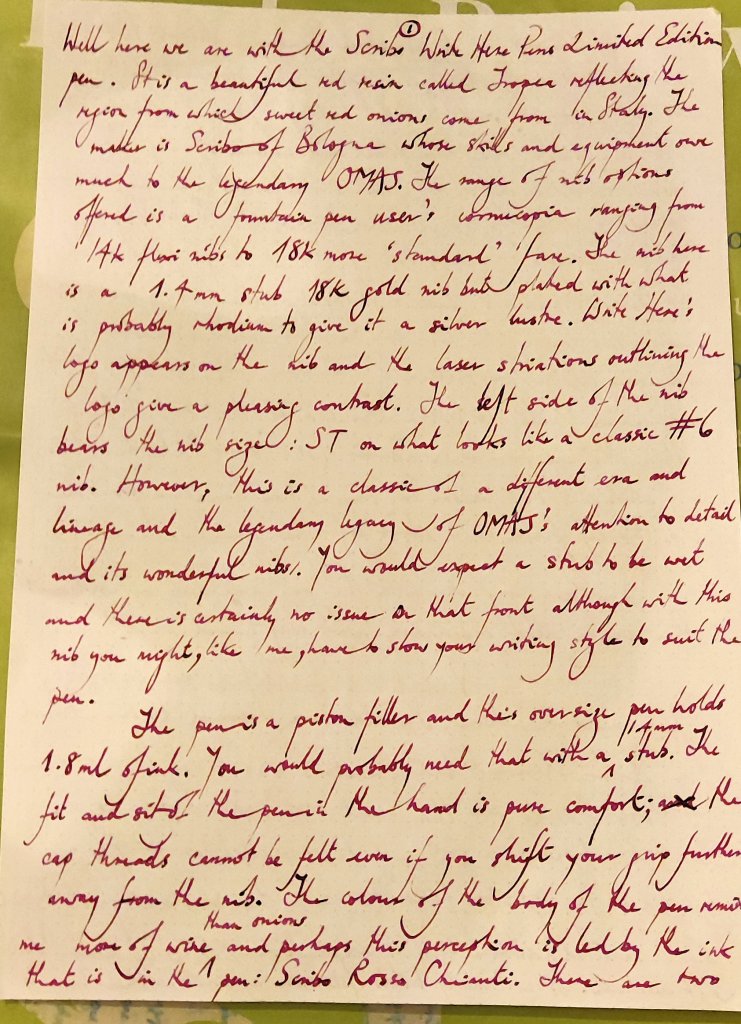 1
Well here we are with the Scribo Write Here Pens Limited Edition
pen. It is a beautiful red resin called Tropea reflecting the
region from which sweet red onions come from in Italy. The
maker is Scribo of Bologna whose skills and equipment owe
much to the legendary OMAS. The range of nib options
offered is a fountain pen user's cornucopia ranging from
14k flexi nibs to 18k more 'standard' fare. The nib here
is a 1.4mm stub 18k gold nib but plated with what
is probably rhodium to give it a silver lustre. Write Here's
logo appears on the nib and the laser striations outlining the
logo give a pleasing contrast. The left side of the nib
bears the nib size: ST on what looks like a classic #6
nib. However, this is a classic of a different era and
lineage and the legendary legacy of OMAS's attention to detail
and its wonderful nibs. You would expect a stub to be wet
and there is certainly no issue on that front although with this
nib you might, like me, have to slow your writing style to suit the
pen.
The pen is a piston filler and this oversize pen holds
1.8ml of ink. You would probably need that with a 1.4mm stub. The
fit and sit of the pen in the hand is pure comfort; the
cap threads cannot be felt even if you shift your grip further
away from the nib. The colour of the body of the pen remin
me more of wine than onions and perhaps this perception is led by the ink
that is in the pen: Scribo Rosso Chianti. There are two